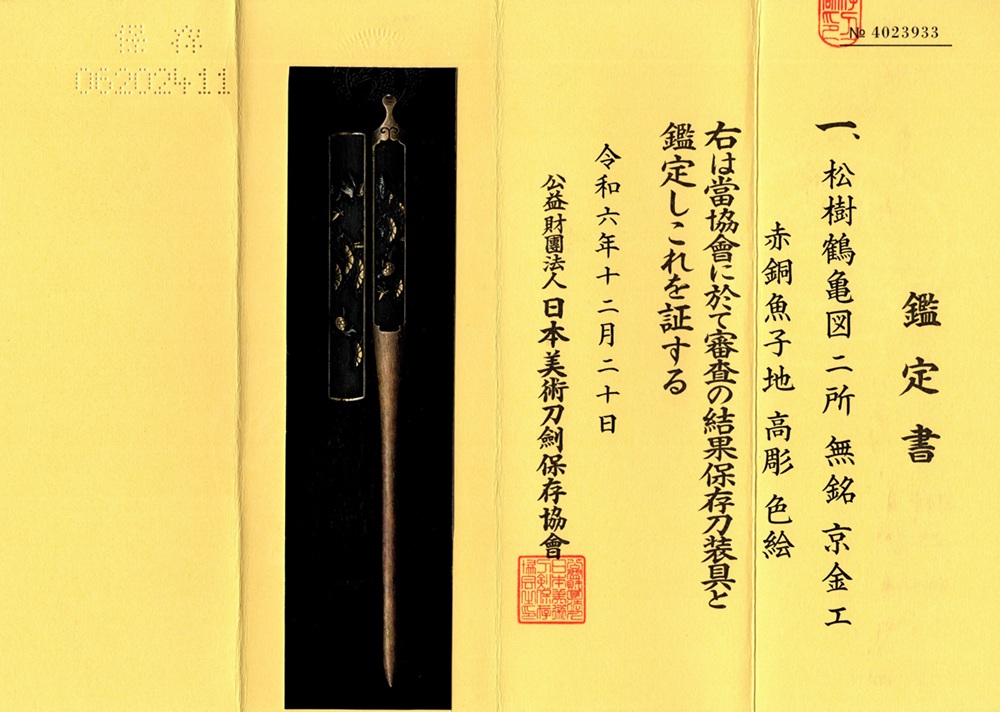 № 4023933
鑑定書
一、松樹鶴亀図二所 無銘 京金工
赤銅魚子地 高彫 色絵
右は當協會に於て審査の結果保存刀装具と
鑑定しこれを証する
令和六年十二月二十日
公益財團法人 日本美術刀劍保存協會
保存
06202411